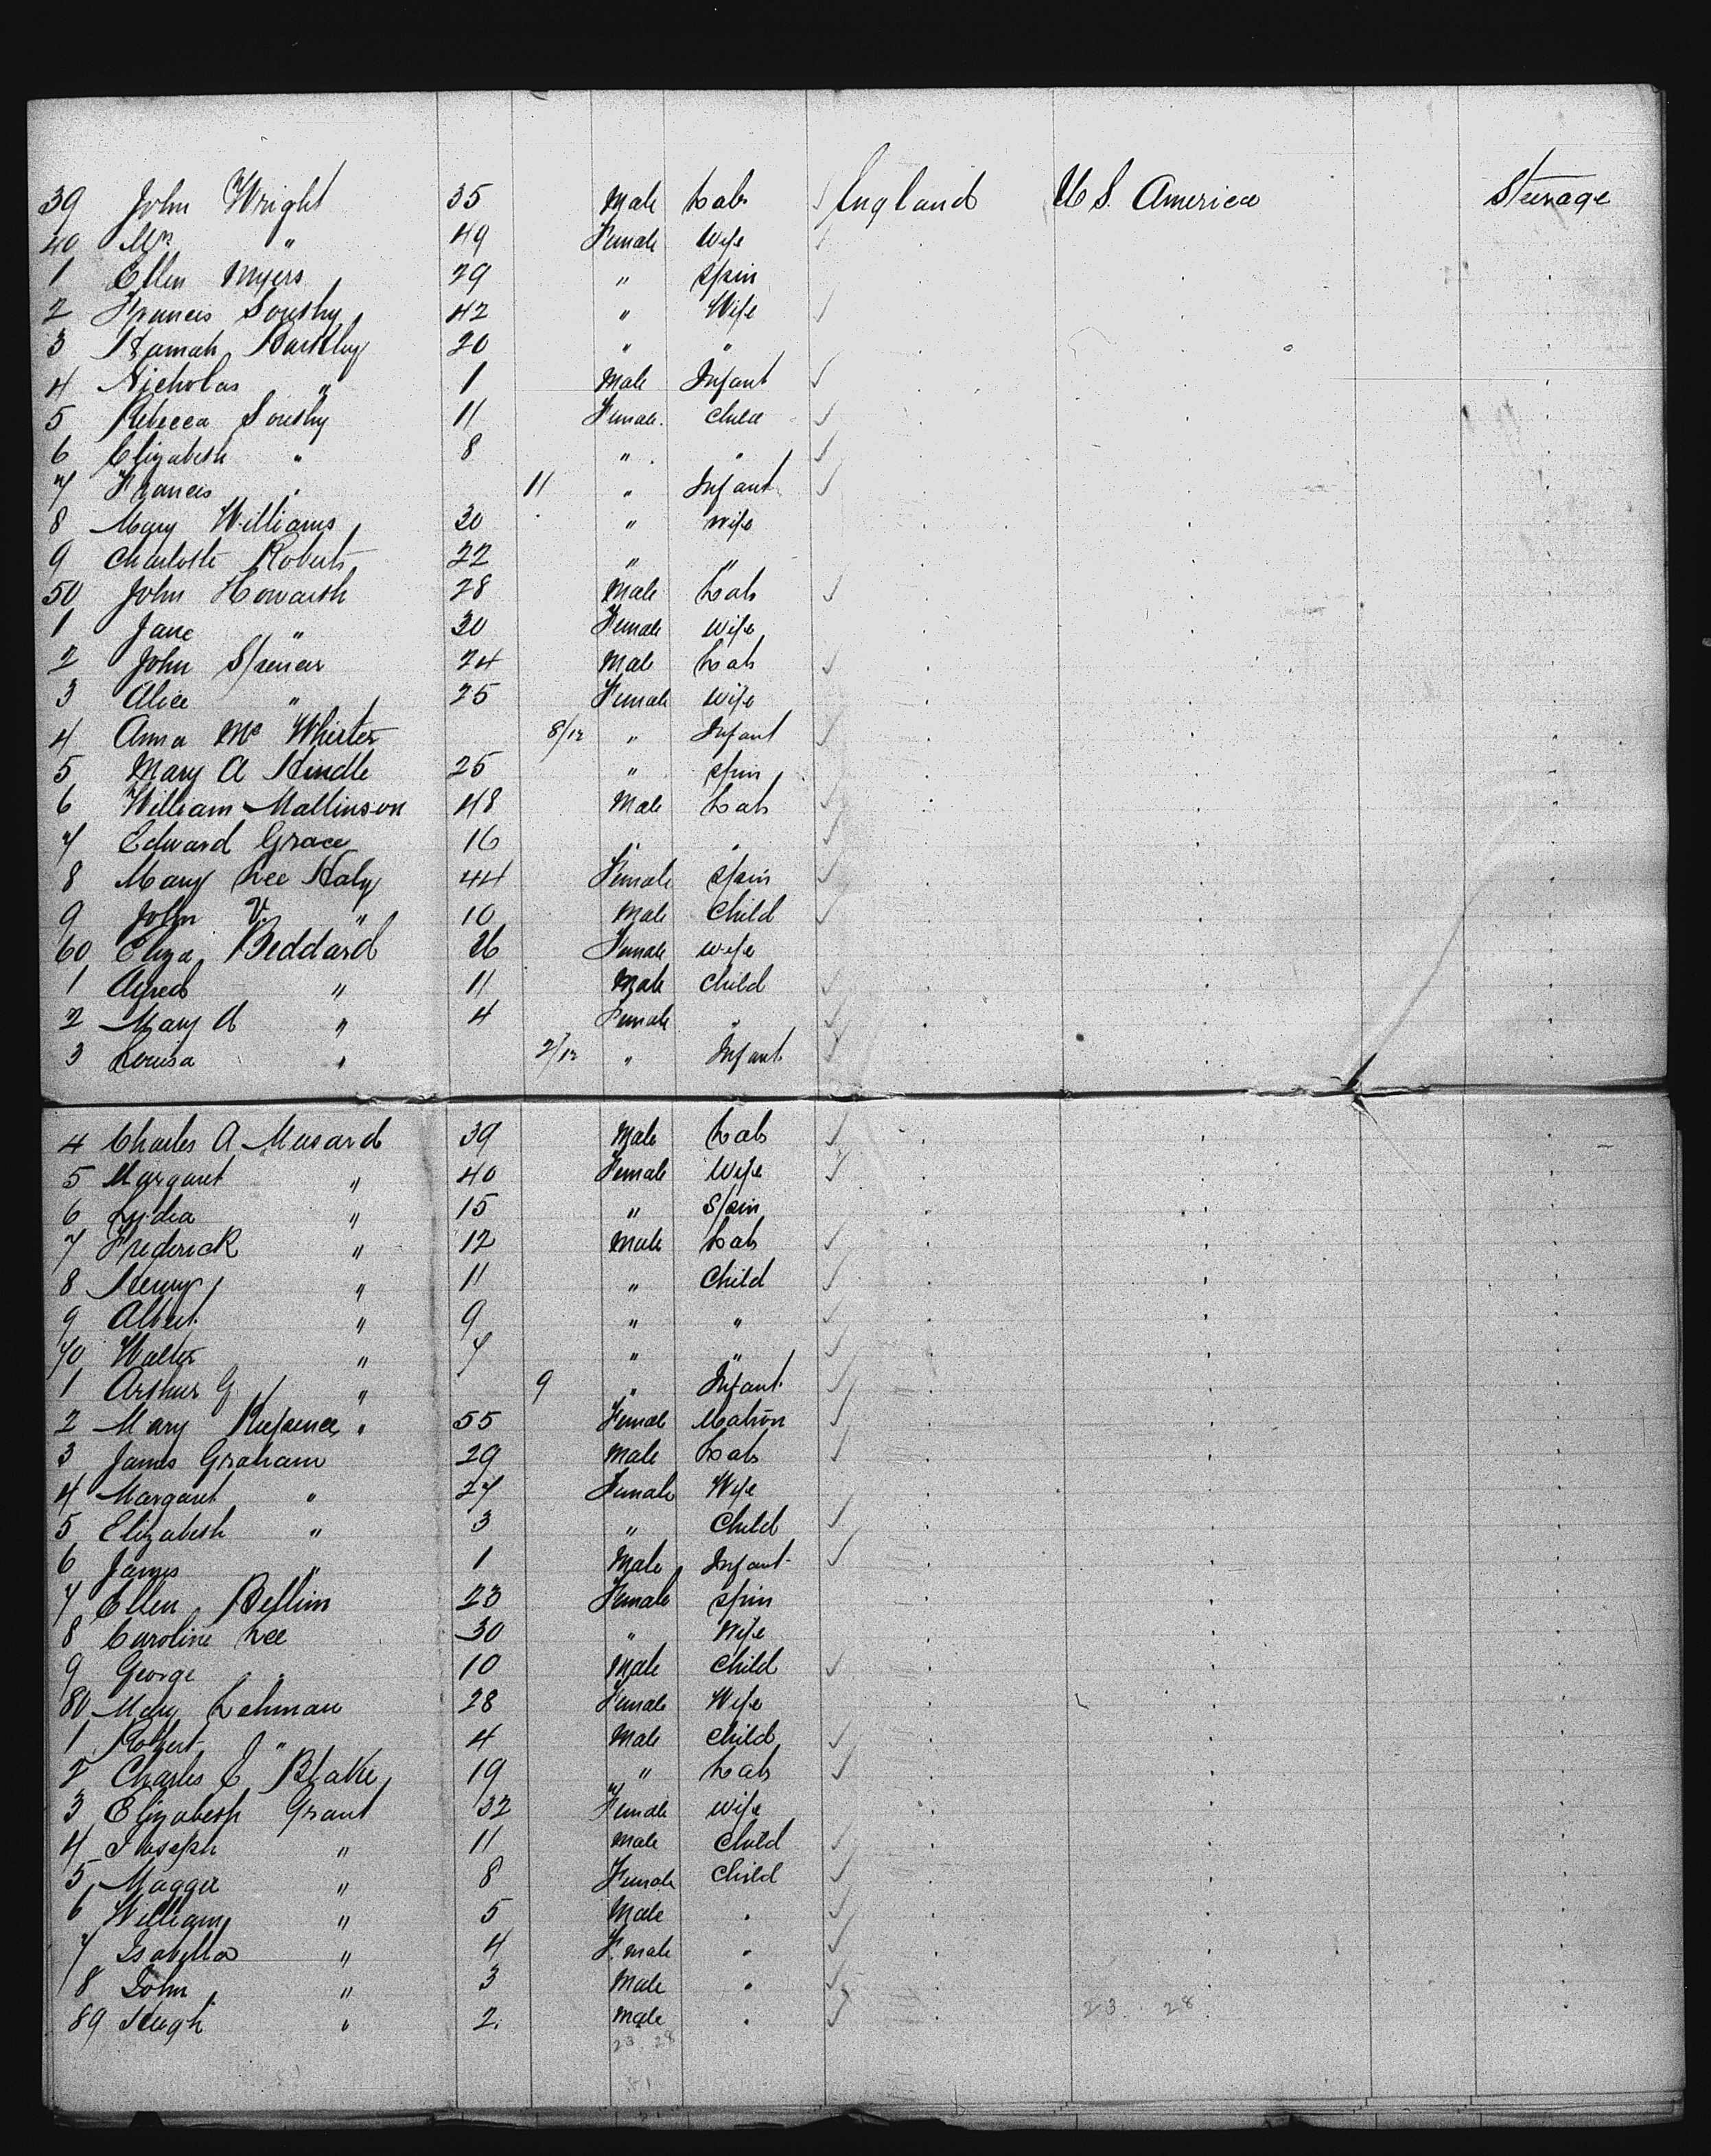 39 John Wright 35 Male Lab England U S. America Steerage
40 Mrs " 49 Female Wife
1 Ellen Myers 29 " Spin
2 Francis Soushy 42 " Wife
3 Hannah 20 " "
4 Nicholas " 1 Male Infant
5 Rebecca Soushy 11 Female. Child
6 Elizabeth " 8 " "
7 Francis " 11 " Infant
8 Mary Williams 30 " Wife
9 Charlotte Roberts 22 " "
50 John Howarth 28 Male Lab
1 Jane " 30 Female Wife
2 John Spencer 24 Male Lab
3 Alice " 25 Female Wife
4 Anna Mc Whirter 8/12 " Infant
5 Mary A Hindle 25 " Spin
6 William Mallinson 48 Male Lab
7 Edward Grace 16 " "
8 Mary Lee Haly 44 Female Spin
9 John V. " 10 Male Child
60 Eliza Beddard 26 Female Wife
1 Alfred " 11 Male Child
2 Mary A " 4 Female "
3 Louisa " 2/12 " Infant
4 Charles A Musard 39 Male Lab
5 Margaret " 40 Female Wife
6 Lydia " 15 " Spin
7 Frederick " 12 Male Lab
8 Henry " 11 " Child
9 Albert " 9 " "
70 Walter " 7 " "
1 Arthur G " 9 " Infant
2 Mary " 55 Female Matron
3 James Graham 29 Male Lab
4 Margaret " 27 Female Wife
5 Elizabeth " 3 " Child
6 James " 1 Male Infant
7 Ellen Bellim 23 Female Spin
8 Caroline Lee 30 " Wife
9 George " 10 Male Child
80 Mary Lehman 28 Female Wife
1 Robert " 4 Male Child
2 Charles E Blake 19 " Lab
3 Elizabeth Grant 32 Female Wife
4 Joseph " 11 Male Child
5 Maggie " 8 Female Child
6 William " 5 Male "
7 Isabella " 4 Female "
8 John " 3 Male "
89 Hugh " 2. Male " 23. 28
23. 28